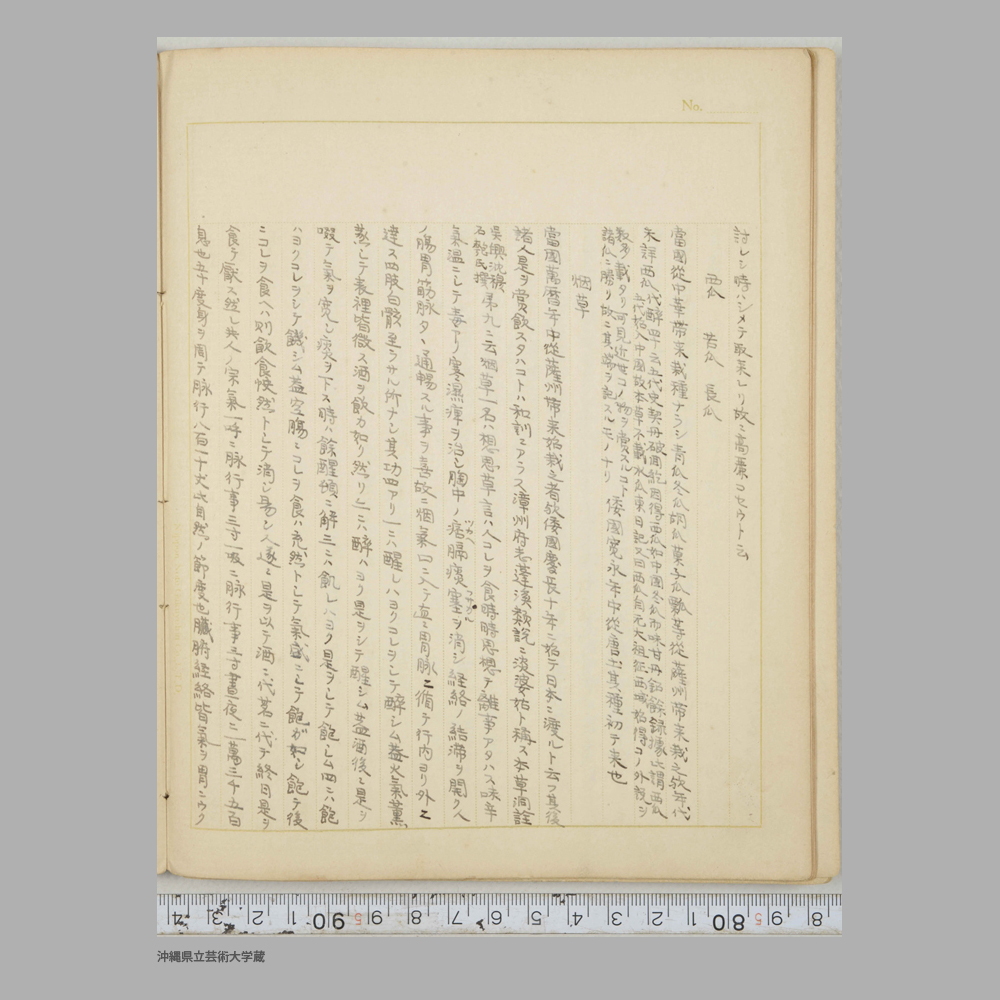 No.
訪レシ時ハシメテ取来レリ故ニ高麗コセウト云
西瓜 苦瓜 長瓜
當國從中華帶来栽種ナラン青瓜冬瓜胡瓜菓子瓜瓢等從薩州帶来栽之欤年代
未詳西瓜代醉四十云五代史契丹破回紇因得西瓜和中國冬瓜而味甘丹鉛餘録據此謂西瓜
五代始入中国故本草不載水瓜東日記又曰西瓜自元太祖征西域始得コノ外説ヲ
数多載タリ可見近世コノ物ヲ賞スルコト
諸瓜ニ勝リ故ニ其等ヲ記スルモノナリ 倭國寛永年中從唐土其種初テ来也
烟草
當國萬暦年中從薩州帶来始栽之者欤倭國慶長十年ニ始テ日本ニ渡ルト云フ其後
諸人是ヲ賞飲スタハコトハ和訓ニアラス漳州府志蓬溪類説ニ淡婆姑ト稱ス本草洞詮
吳興沈穆
石匏氏撰 第九ニ云烟草一名ハ相思草言ハ人コレヲ食時時思想テ離事アタハス味辛
氣温ニシテ毒アリ寒濕痺ヲ治シ胸中ノ痞膈痰塞ヲ消シ経絡ノ結滞ヲ開ク人
ノ腸胃筋脉タヽ通暢スル事ヲ喜故ニ烟氣口ニ入テ直ニ胃脉ニ循テ行内ヨリ外ニ
達ス四肢百骸至ラサル所ナシ其功四アリ一ニハ醒レハヨクコレヲシテ醉シム蓋火氣薫
蒸シテ表裡皆徹ス酒ヲ飲カ如リ然ツリ二ニハ醉ハヨク是ヲシテ醒シム蓋酒後ニ是ヲ
啜テ氣ヲ寛シ痰ヲ下ス時ハ餘酲頓ニ解三ニハ飢レハヨク是ヲシテ飽シム四ニハ飽
ハヨクコレヲシテ饑シム蓋空腸ニコレヲ食ハ充然トシテ氣盛ニシテ飽カ如シ飽テ後
ニコレヲ食ヘハ則飲食快然トシテ消シ易シ人遂ニ是ヲ以テ酒ニ代茗ニ代テ終日是ヲ
食テ厭ス然レ共人ノ宗氣一呼ニ脉行事三寸一吸ニ脉行事三寸晝夜ニ一萬三千五百
息也五十度身ヲ周テ脉行八百一十丈此自然ノ節度也臓腑経絡皆氣ヲ胃ニウク
ツカヘ
フサカル
4 3 2 1 90 9 8 7 6 5 4 3 2 1 80 9 8
沖縄県立芸術大学蔵